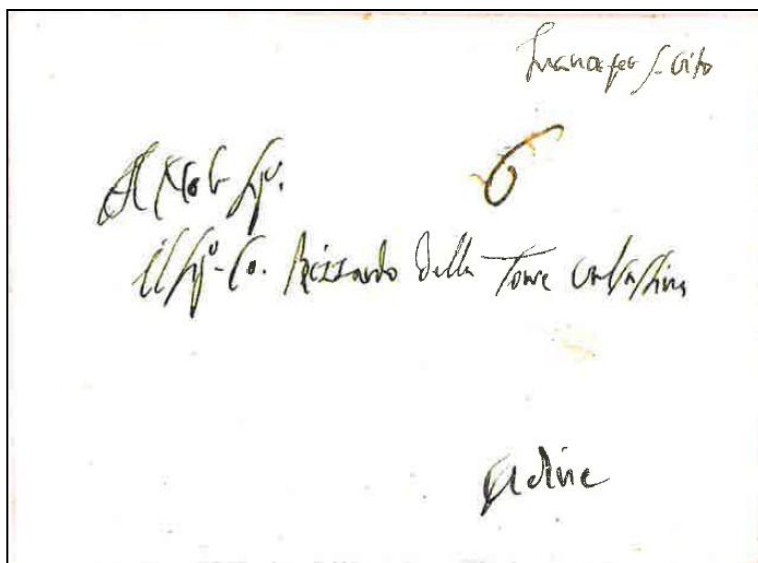 per S. Vito
Al Nob. Sig.r
6
il Sig.r Co. Rizzardo Della Torre Valsassina
Udine